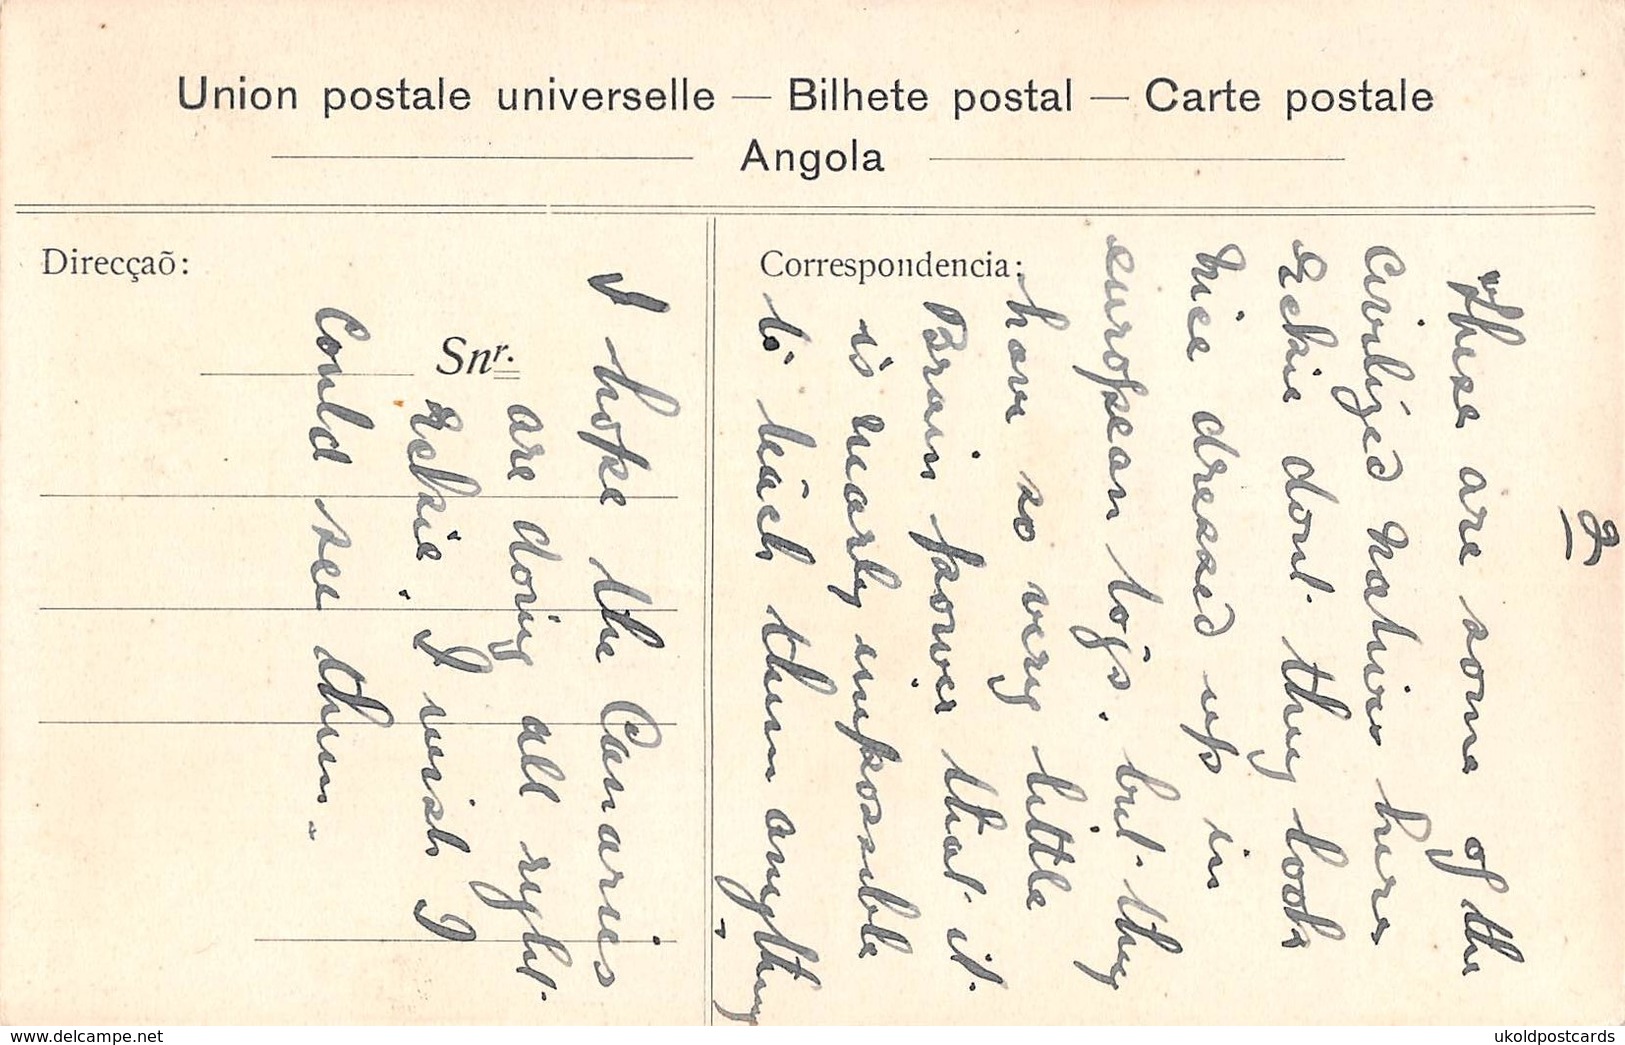 Union postale universelle — Bilhete postal — Carte postale
Angola
Direcçaõ:
Snr.
Correspondencia:
2
These are some of the
Civilized natives here
Eckie dont they look
nice dressed up in
european togs. but they
have so very little
Brain power that it
is nearly impossible
to teach them anything
I hope the Canaries
are doing all right
Eckie, I wish I
Could see them.
delcampe.net
ukoldpostcards